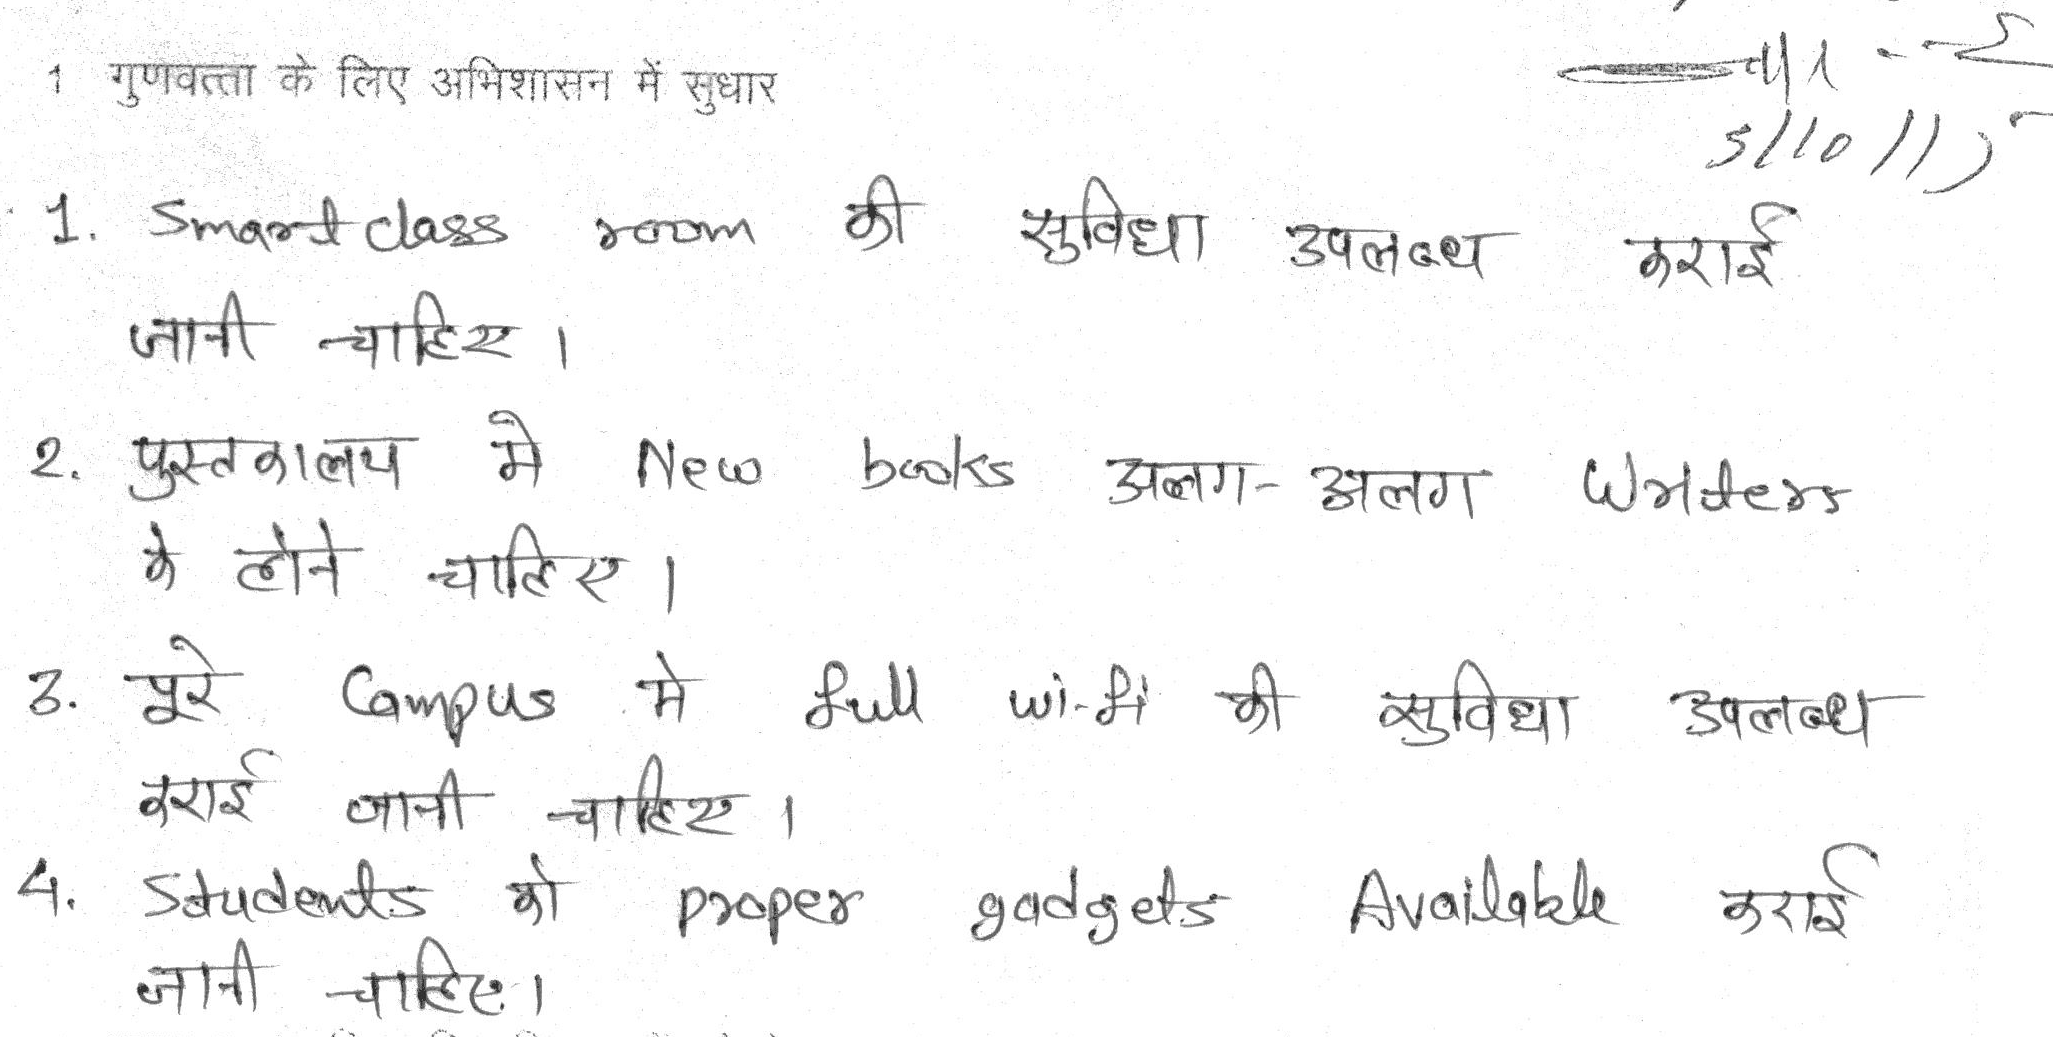 1 गुणवत्ता के लिए अभिशासन में सुधार
5/10/15
1. Smart class room की सुविधा उपलब्ध कराई
जानी चाहिए।
2. पुस्तकालय मे New books अलग-अलग Writers
के होने चाहिए।
3. पूरे Campus मे full wi-fi की सुविधा उपलब्ध
कराई जानी चाहिए।
4. Students को proper gadgets Available कराई
जानी चाहिए।